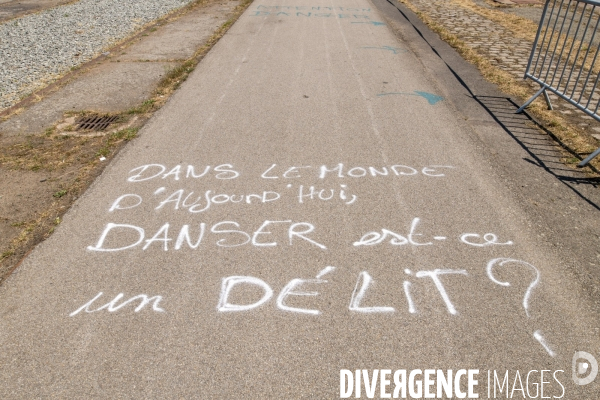 DANGER
DANS LE MONDE
D'AUJOURD'HUI,
DANSER est-ce
un DÉLiT ?
DIVERGENCE IMAGES